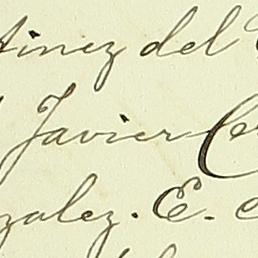 tinez del
Javier Ce
zalez. E. c